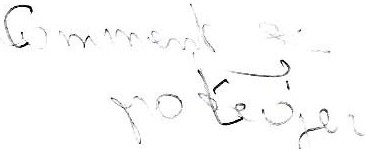 Comment se
protéger